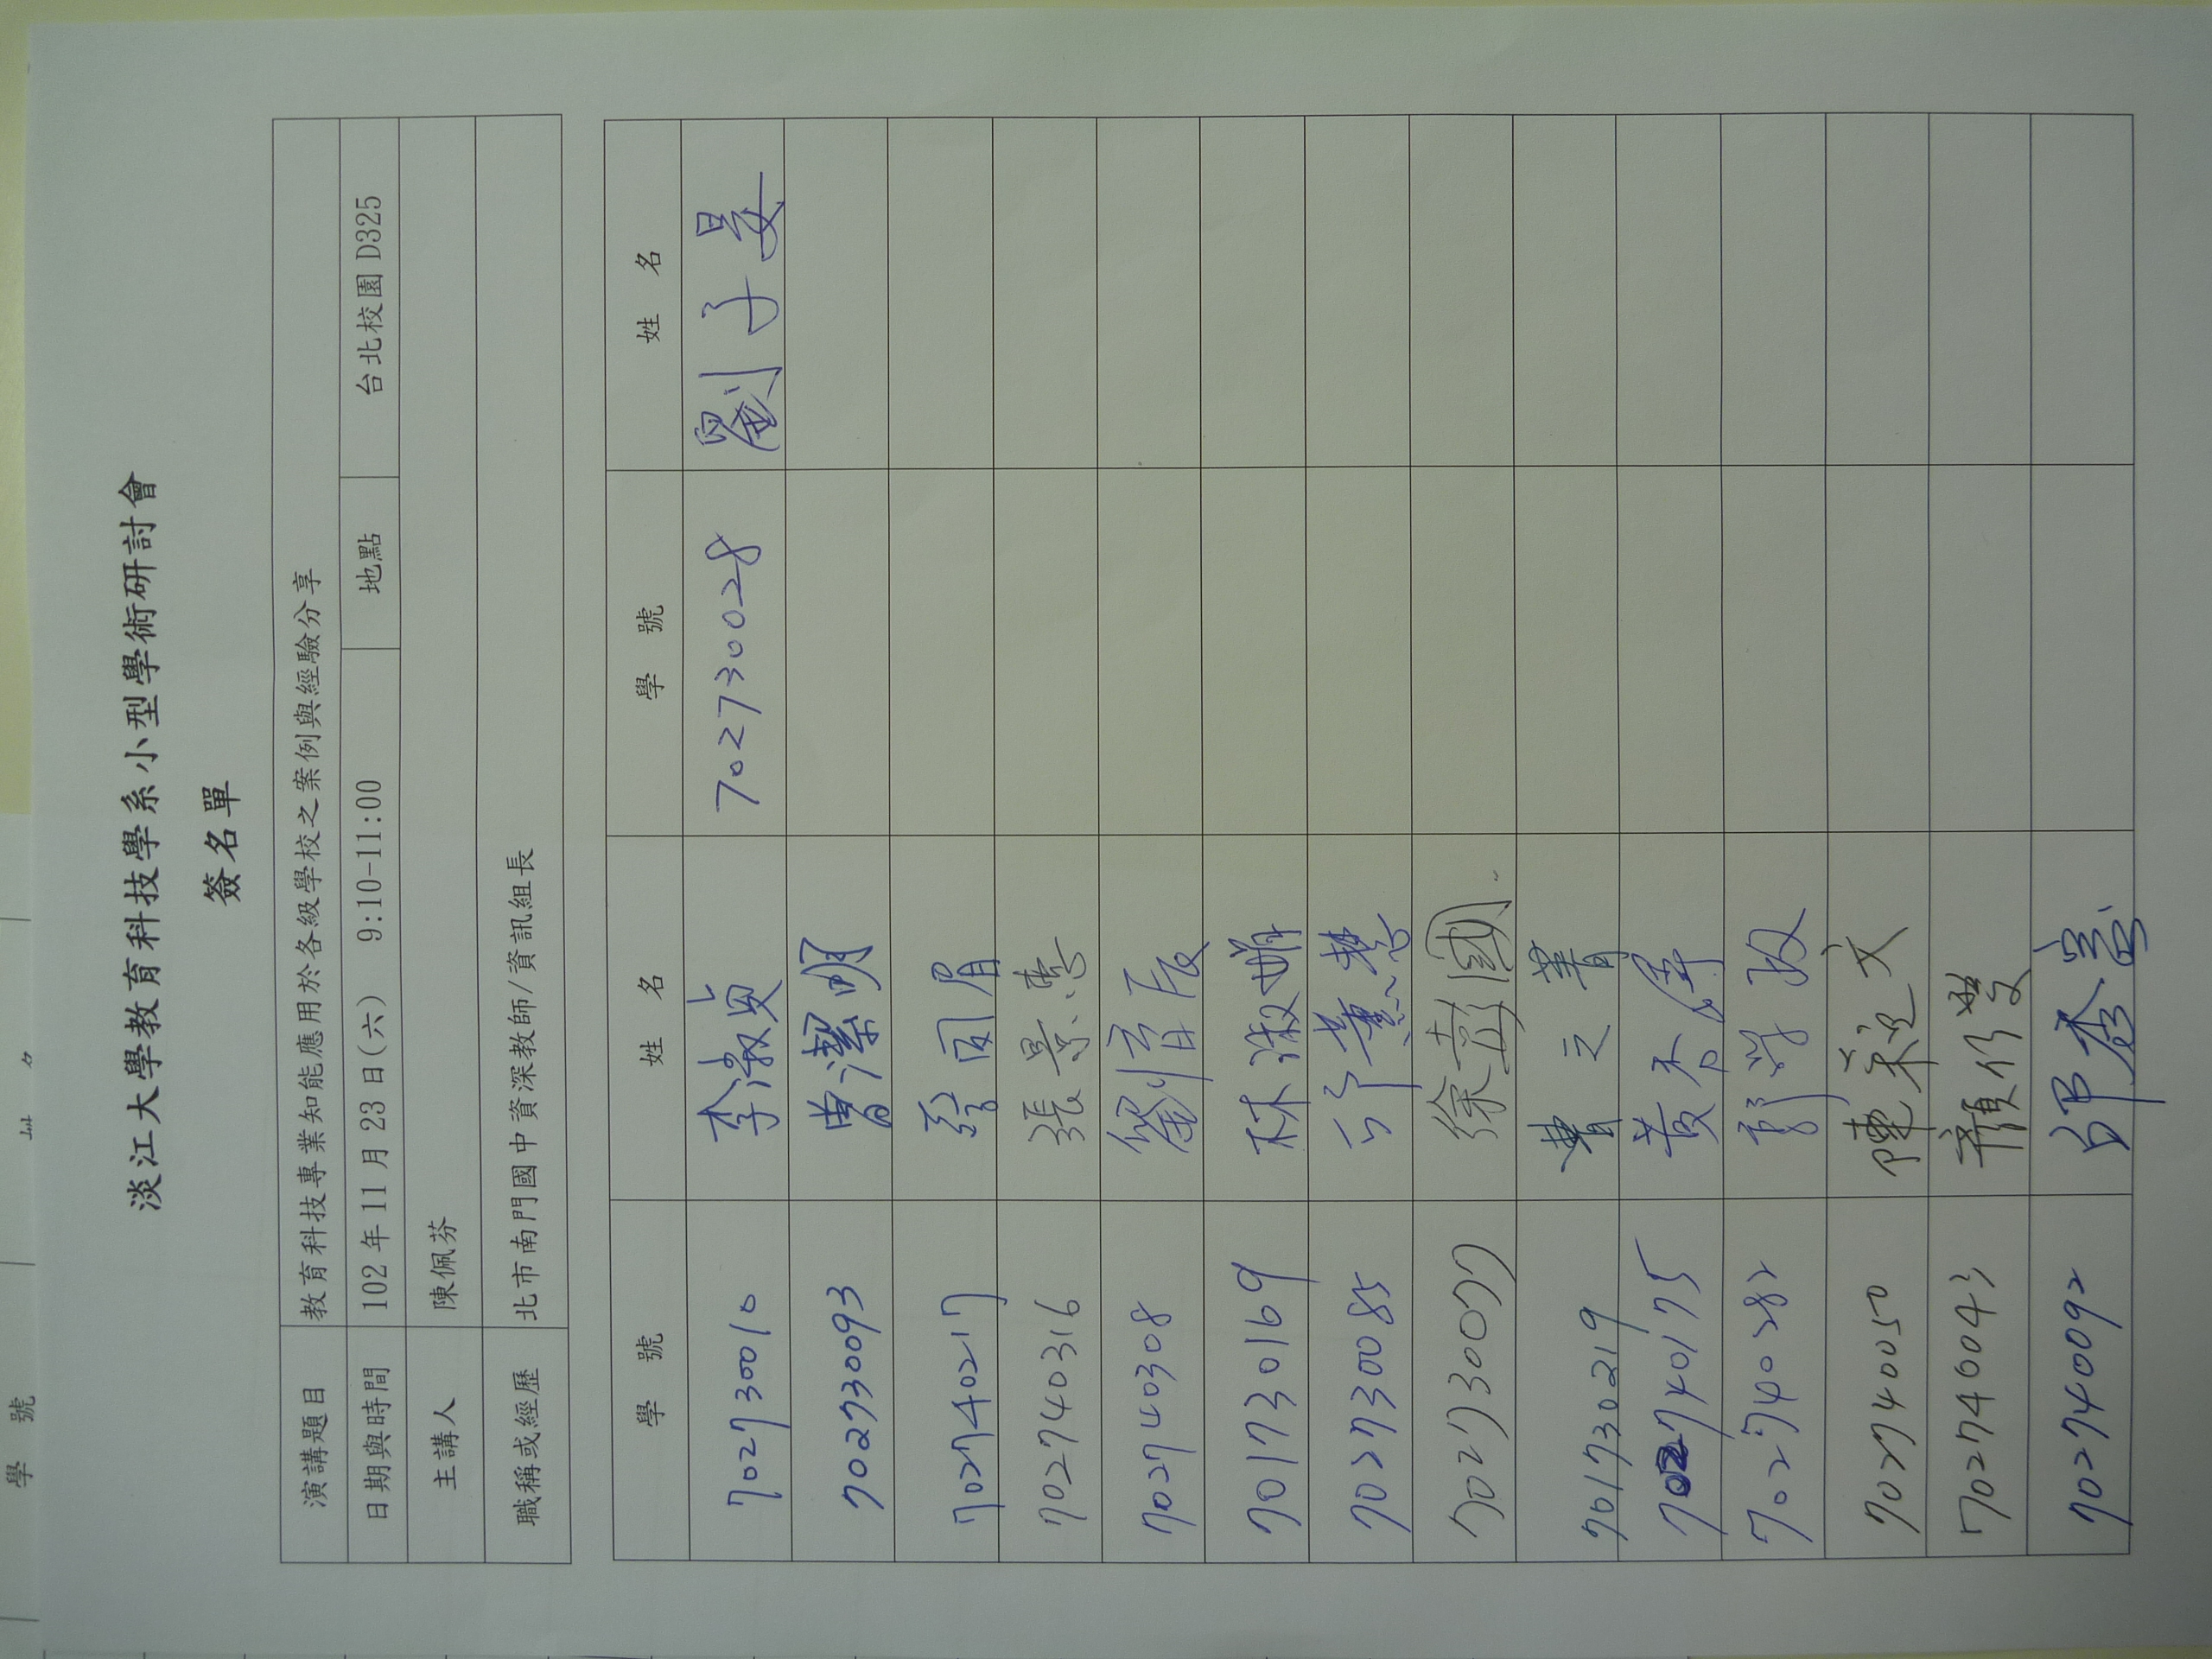 學 號
淡江大學教育科技學系小型學術研討會
簽名單
演講題目 教育科技專業知能應用於各級學校之案例與經驗分享
日期與時間 102 年 11 月 23 日(六) 9:10-11:00 地點 台北校園 D325
主講人 陳佩芬
職稱或經歷 北市南門國中資深教師/資訊組長
學 號 姓 名 學 號 姓 名
702730010 李淑貞 702730028 劉子晏
702730093 曾潔明
702740217 眉
702740316 張景
702740308 劉育辰
701730169 林淑
702730085 慧
702730077 徐彭國
701730219 曹之菁
702740175 黃
702740282 郭
702740050 陳 文
702740043
702740092 邱